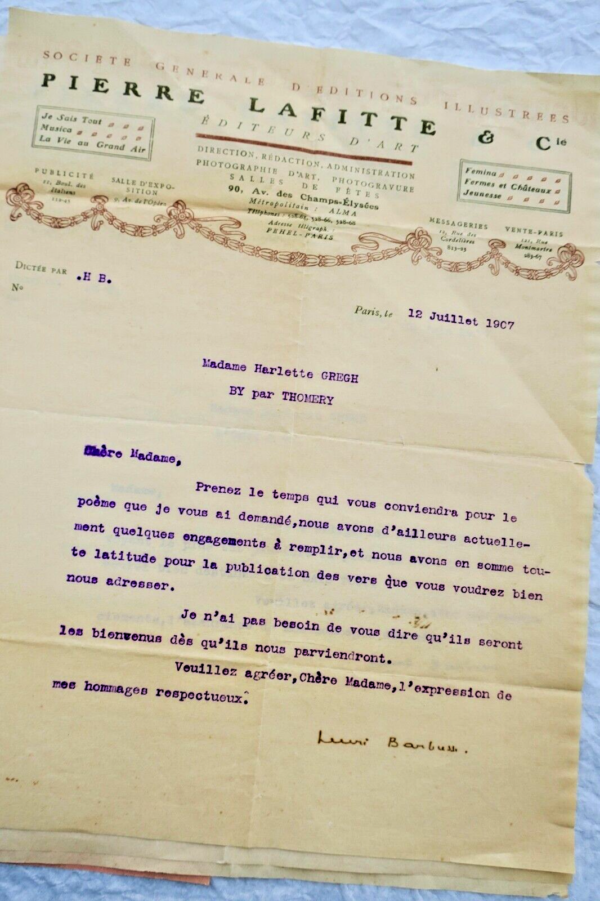 SOCIÉTÉ GÉNÉRALE D'ÉDITIONS ILLUSTRÉES
PIERRE LAFITTE & Cie
ÉDITEURS D'ART
Je Sais Tout
Musica
La Vie au Grand Air
DIRECTION, RÉDACTION, ADMINISTRATION
PHOTOGRAPHIE D'ART, PHOTOGRAVURE
SALLES DE FÊTES
90, Av. des Champs-Élysées
Métropolitain : ALMA
Téléphones :
Adresse télégraph.
PEHEL-PARIS
Femina
Fermes et Châteaux
Jeunesse
PUBLICITÉ
Boul. des
Italiens
SALLE D'EXPO-
SITION
Av. de l'Opéra
MESSAGERIES
Rue des
Cordelières
VENTE-PARIS
Rue
Montmartre
DICTÉE PAR .H B.
No
Paris, le 12 Juillet 1907
Madame Harlette GREGH
BY par THOMERY
Chère Madame,
Prenez le temps qui vous conviendra pour le
poème que je vous ai demandé,nous avons d'ailleurs actuelle-
ment quelques engagements à remplir,et nous avons en somme tou-
te latitude pour la publication des vers que vous voudrez bien
nous adresser.
Je n'ai pas besoin de vous dire qu'ils seront
les bienvenus dès qu'ils nous parviendront.
Veuillez agréer,Chère Madame,l'expression de
mes hommages respectueux.
Henri Barbusse.